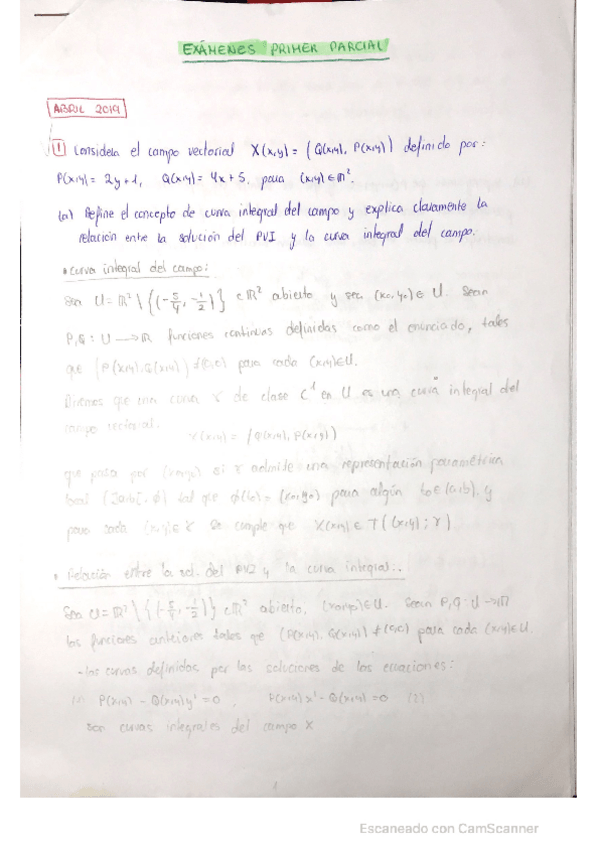 EXÁMENES PRIMER PARCIAL
ABRIL 2019
1 Considera el campo vectorial X(x,y) = (Q(x,y), P(x,y)) definido por:
P(x,y) = 2y+1, Q(x,y) = 4x+5, para (x,y)∈ℝ².
(a) Define el concepto de curva integral del campo y explica claramente la
relación entre la solución del PVI y la curva integral del campo.
• Curva integral del campo:
Sea U = ℝ² \ {(-5/4, -1/2)} ⊂ ℝ² abierto y sea (x₀,y₀) ∈ U. Sean
P,Q: U → ℝ funciones continuas definidas como el enunciado, tales
que (P(x,y), Q(x,y)) ≠ (0,0) para cada (x,y)∈U.
Diremos que una curva γ de clase C¹ en U es una curva integral del
campo vectorial
X(x,y) = (Q(x,y), P(x,y))
que pasa por (x₀,y₀) si γ admite una representación paramétrica
local (]a,b[, ϕ) tal que ϕ(t₀) = (x₀,y₀) para algún t₀∈(a,b), y
para cada (x,y)∈γ se cumple que X(x,y) ∈ T((x,y); γ)
• Relación entre la sol. del PVI y la curva integral:
Sea U = ℝ² \ {(-5/4, -1/2)} ⊂ ℝ² abierto, (x₀,y₀)∈U. Sean P,Q: U → ℝ
las funciones anteriores tales que (P(x,y), Q(x,y)) ≠ (0,0) para cada (x,y)∈U.
- las curvas definidas por las soluciones de las ecuaciones:
P(x,y) - Q(x,y)y' = 0, P(x,y)x' - Q(x,y) = 0 (2)
son curvas integrales del campo X
1
Escaneado con CamScanner